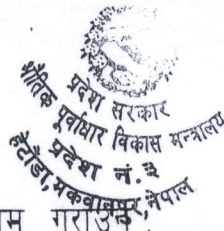 प्रदेश सरकार
भौतिक पूर्वाधार विकास मन्त्रालय
प्रदेश नं. ३
हेटौंडा, मकवानपुर, नेपाल
गराउने